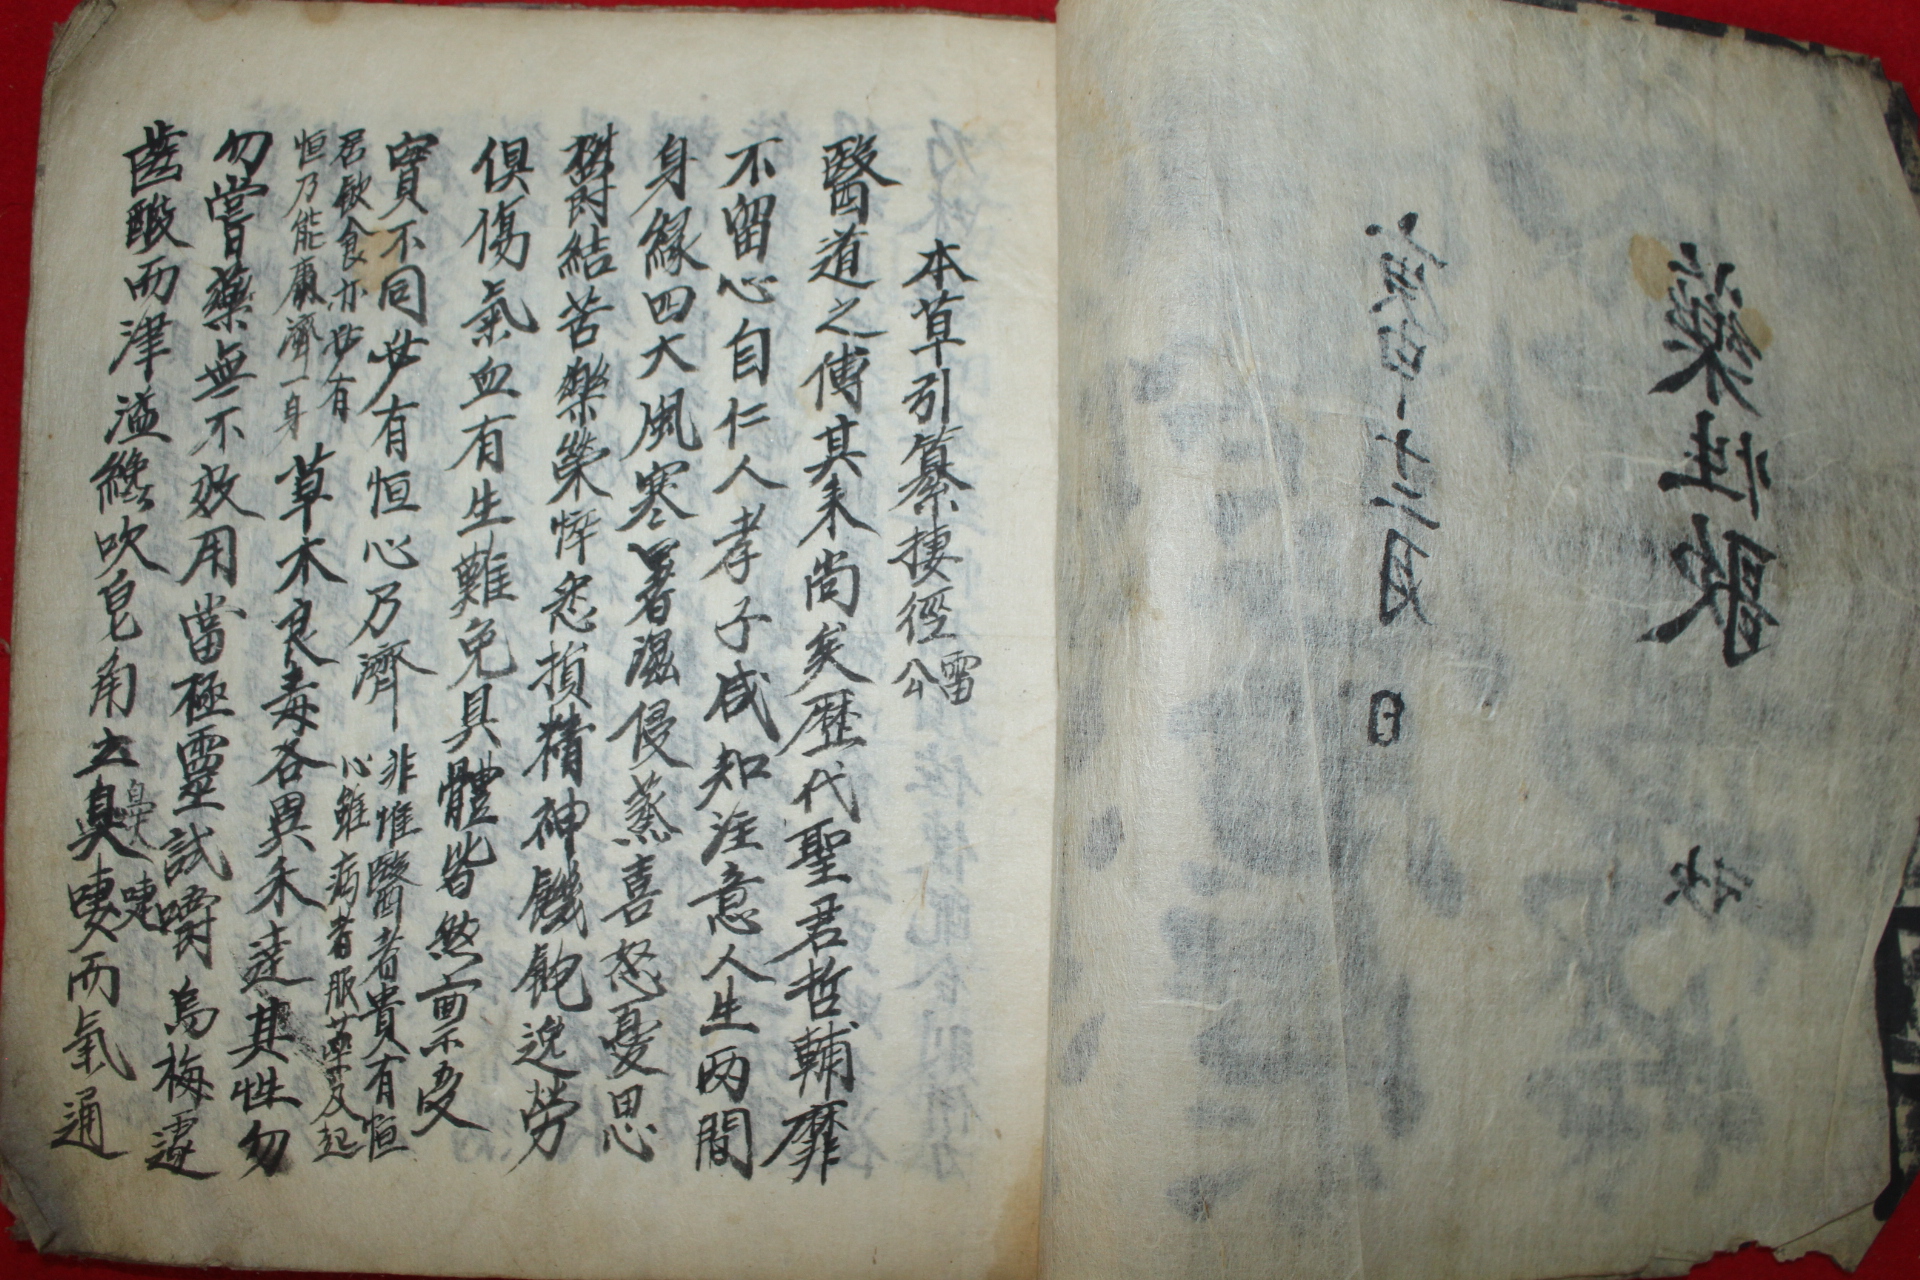 藥性歌
十二月
日
抄
本草引纂捷徑 雷公
醫道之傳其来尚矣歷代聖君哲輔靡
不留心自仁人孝子咸知注意人生两間
身緣四大風寒暑濕侵蒸喜怒憂思
欝結苦樂榮悴悉損精神饑飽逸勞
俱傷氣血有生難免具體皆然而禀受
實不同必有恒心乃濟
非惟醫者貴有恒
心雖病者服藥及起
居飲食亦必有
恒乃能康濟一身
草木良毒各異未達其性勿
勿嘗藥無不效用當極靈試嚼烏梅遽
齒酸而津溢纔吹皂角立鼻嚏而氣通
鼻
嚏